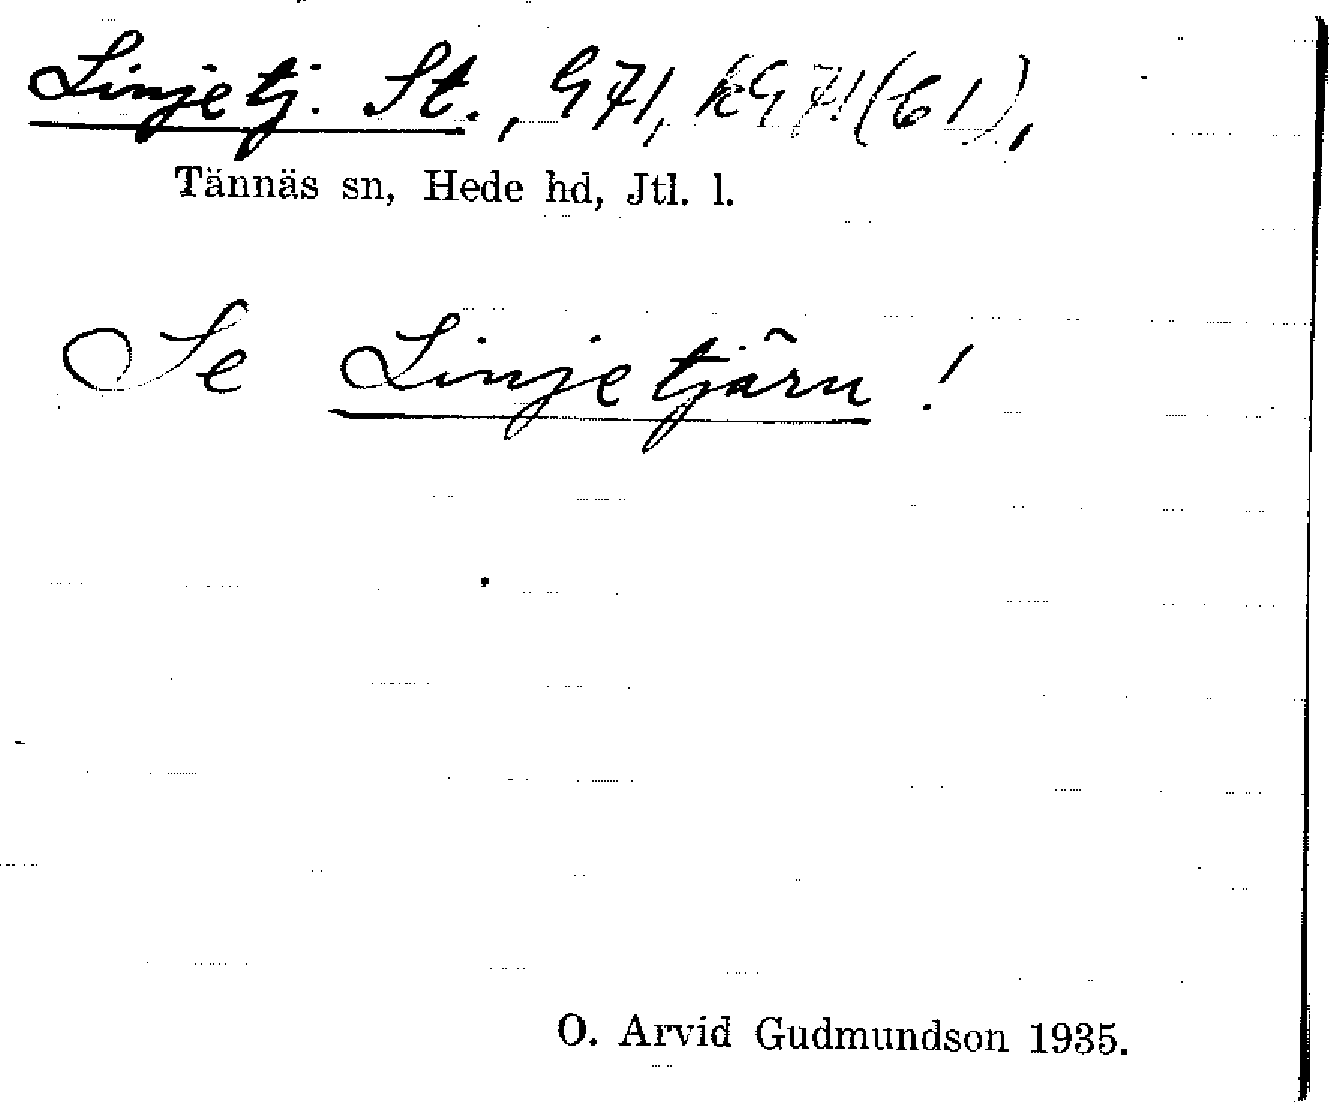 Linjetj. St., G71, kG71(61),
Tännäs sn, Hede hd, Jtl. l.
Se Linjetjärn!
O. Arvid Gudmundson 1935.